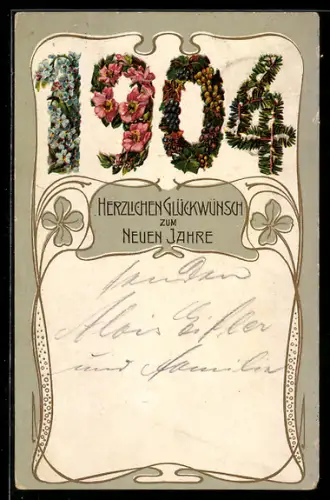 1904
HERZLICHEN GLÜCKWUNSCH
ZUM
NEUEN JAHRE
senden
Alois Eifler
und Familie